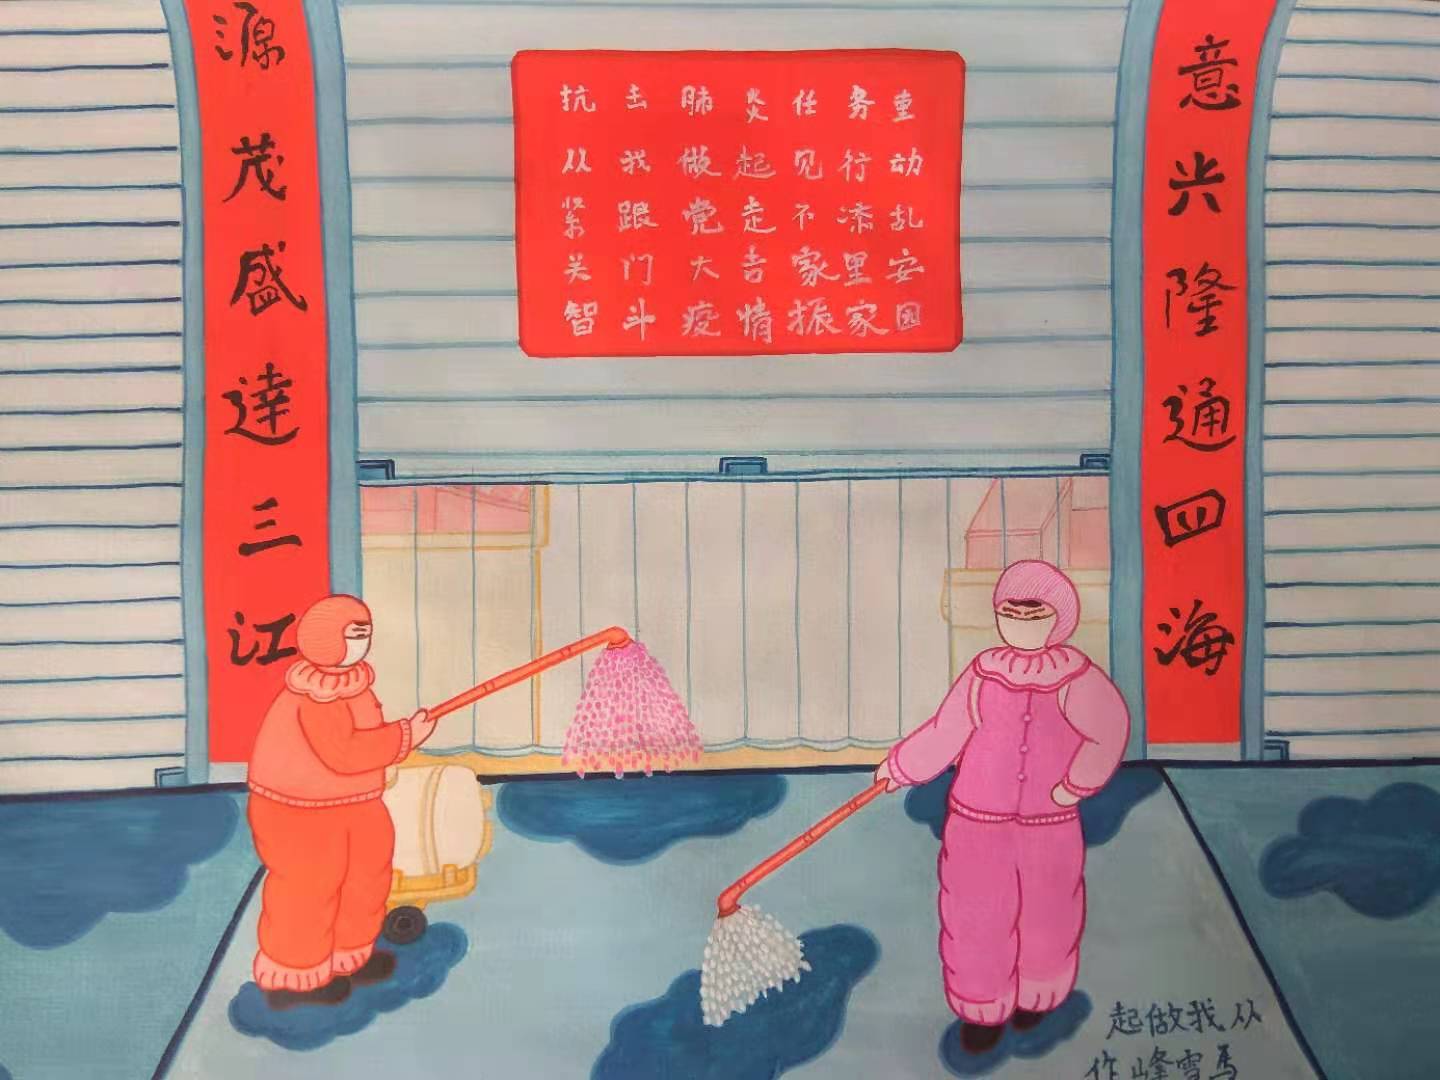 意兴隆通四海
源茂盛達三江
抗击肺炎任务重
从我做起见行动
紧跟党走不添乱
关门大吉家里安
智斗疫情振家国
从我做起
马雪峰作